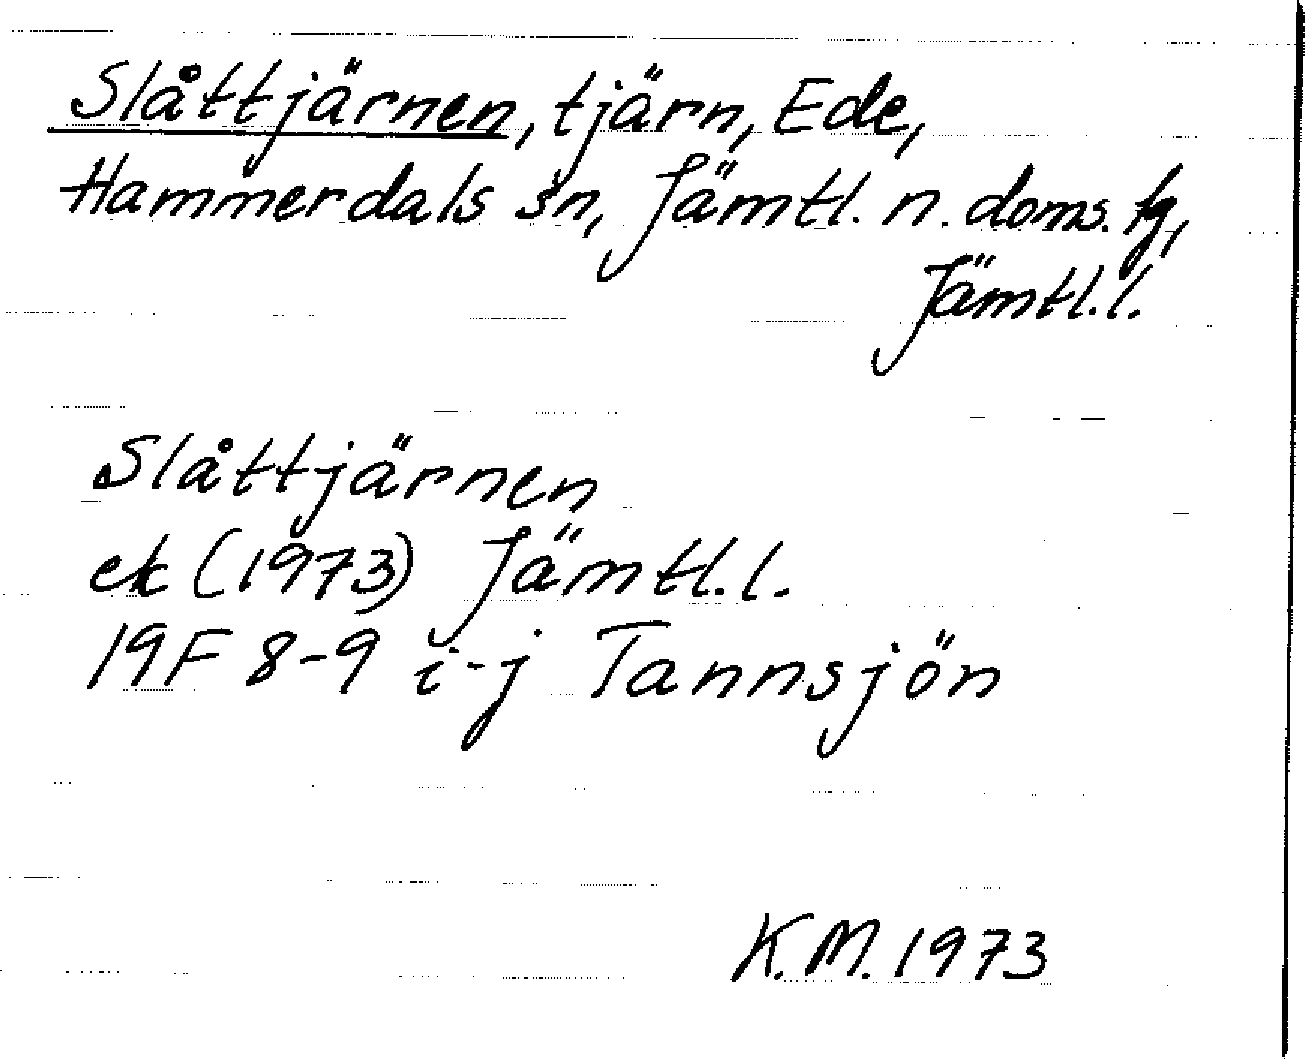 Slåttjärnen, tjärn, Ede,
Hammerdals sn, Jämtl. n. doms. fg,
Jämtl.l.
Slåttjärnen
ek (1973) Jämtl.l.
19F 8-9 i-j Tannsjön
K.M. 1973